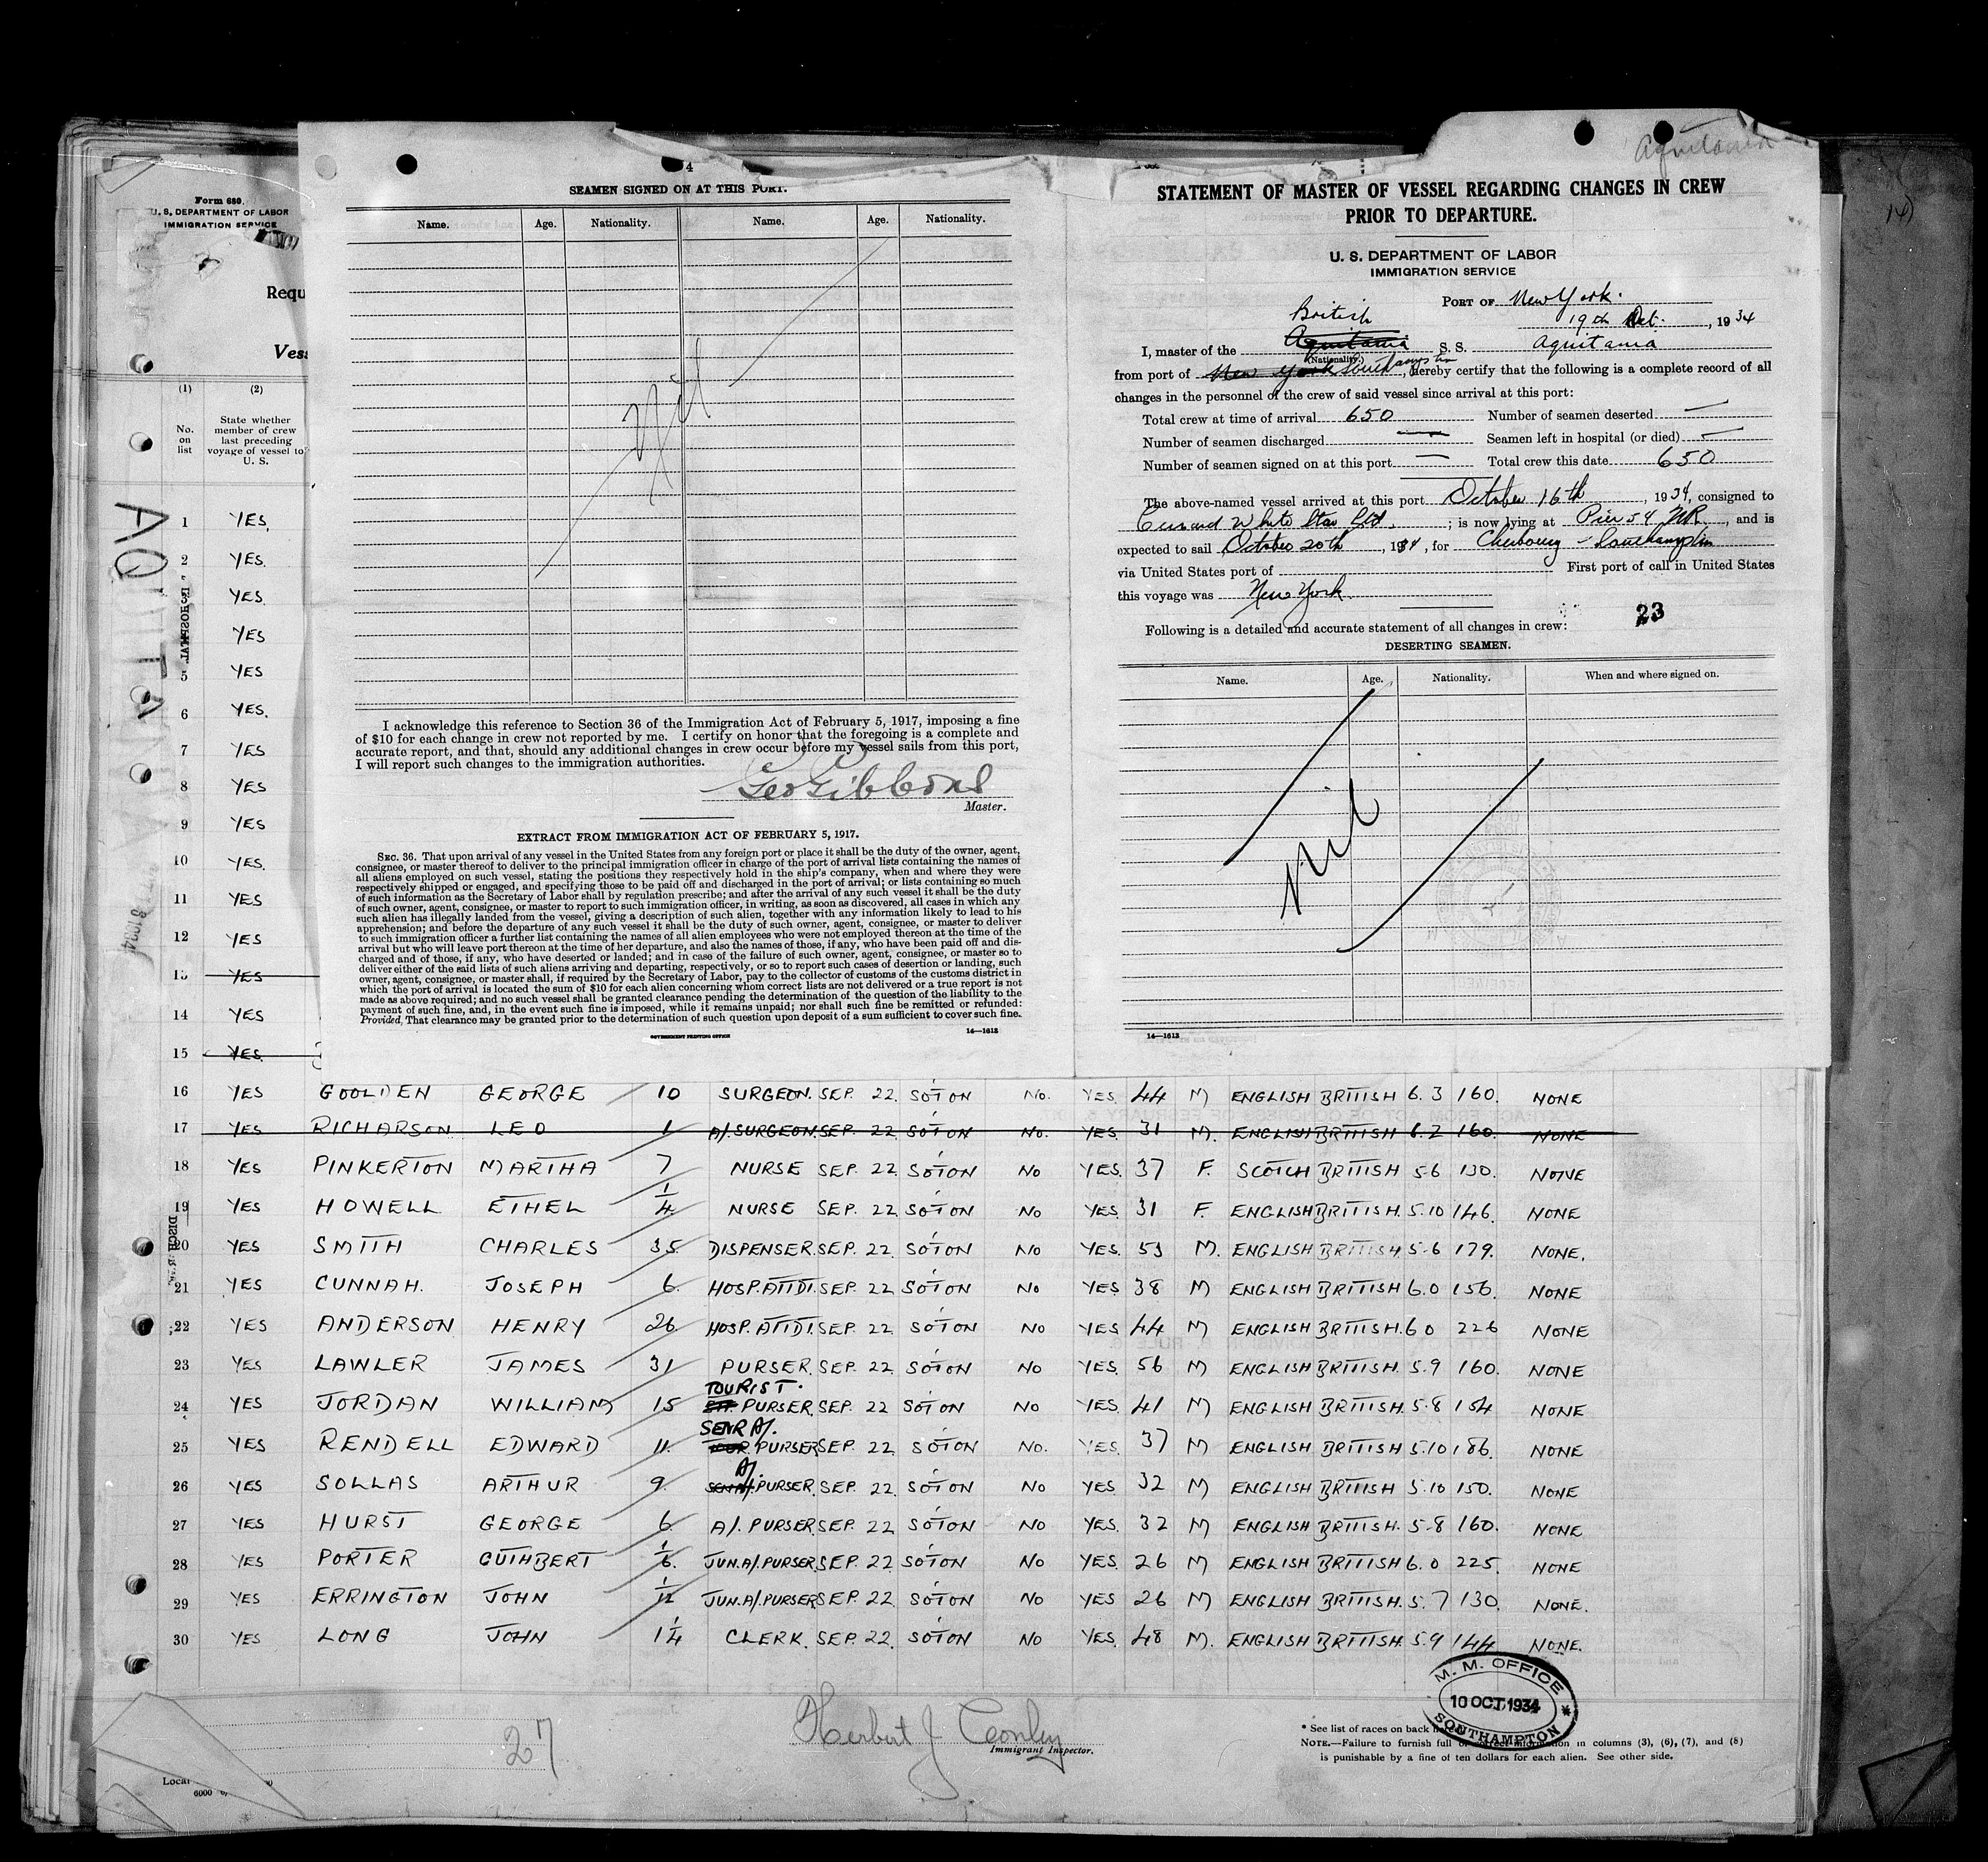 Aquitania
14)
Form 680.
U. S. DEPARTMENT OF LABOR
IMMIGRATION SERVICE
Requ
Vess
(1) (2)
No. on list
State whether member of crew last preceding voyage of vessel to U. S.
AQUITANIA
IN HOSPITAL
1 YES,
2 YES.
YES.
YES
5 YES
6 YES.
7 YES
8 YES
9 YES
10 YES.
11 YES
12 YES
13 YES
14 YES
15 YES.
4
SEAMEN SIGNED ON AT THIS PORT.
Name. Age. Nationality. Name. Age. Nationality.
Nil
I acknowledge this reference to Section 36 of the Immigration Act of February 5, 1917, imposing a fine
of $10 for each change in crew not reported by me. I certify on honor that the foregoing is a complete and
accurate report, and that, should any additional changes in crew occur before my vessel sails from this port,
I will report such changes to the immigration authorities.
Geo Gibbons
Master.
EXTRACT FROM IMMIGRATION ACT OF FEBRUARY 5, 1917.
SEC. 36. That upon arrival of any vessel in the United States from any foreign port or place it shall be the duty of the owner, agent,
consignee, or master thereof to deliver to the principal immigration officer in charge of the port of arrival lists containing the names of
all aliens employed on such vessel, stating the positions they respectively hold in the ship's company, when and where they were
respectively shipped or engaged, and specifying those to be paid off and discharged in the port of arrival; or lists containing so much
of such information as the Secretary of Labor shall by regulation prescribe; and after the arrival of any such vessel it shall be the duty
of such owner, agent, consignee, or master to report to such immigration officer, in writing, as soon as discovered, all cases in which any
such alien has illegally landed from the vessel, giving a description of such alien, together with any information likely to lead to his
apprehension; and before the departure of any such vessel it shall be the duty of such owner, agent, consignee, or master to deliver
to such immigration officer a further list containing the names of all alien employees who were not employed thereon at the time of the
arrival but who will leave port thereon at the time of her departure, and also the names of those, if any, who have been paid off and dis-
charged and of those, if any, who have deserted or landed; and in case of the failure of such owner, agent, consignee, or master so to
deliver either of the said lists of such aliens arriving and departing, respectively, or so to report such cases of desertion or landing, such
owner, agent, consignee, or master shall, if required by the Secretary of Labor, pay to the collector of customs of the customs district in
which the port of arrival is located the sum of $10 for each alien concerning whom correct lists are not delivered or a true report is not
made as above required; and no such vessel shall be granted clearance pending the determination of the question of the liability to the
payment of such fine, and, in the event such fine is imposed, while it remains unpaid; nor shall such fine be remitted or refunded:
Provided, That clearance may be granted prior to the determination of such question upon deposit of a sum sufficient to cover such fine.
GOVERNMENT PRINTING OFFICE 14—1613
STATEMENT OF MASTER OF VESSEL REGARDING CHANGES IN CREW
PRIOR TO DEPARTURE.
U. S. DEPARTMENT OF LABOR
IMMIGRATION SERVICE
PORT OF New York.
19th Oct. , 1934
British
I, master of the Aquitania S. S. Aquitania
(Nationality.)
from port of New York Southampton, hereby certify that the following is a complete record of all
changes in the personnel of the crew of said vessel since arrival at this port:
Total crew at time of arrival 650 Number of seamen deserted —
Number of seamen discharged — Seamen left in hospital (or died) —
Number of seamen signed on at this port — Total crew this date 650
The above-named vessel arrived at this port October 16th, 1934, consigned to
Cunard White Star Ltd. ; is now lying at Pier 54 NR, and is
expected to sail October 20th, 1934, for Cherbourg - Southampton
via United States port of First port of call in United States
this voyage was New York.
23
Following is a detailed and accurate statement of all changes in crew:
DESERTING SEAMEN.
Name. Age. Nationality. When and where signed on.
nil
14—1613
16 YES GOOLDEN GEORGE 10 SURGEON. SEP. 22. SOTON No. YES. 44 M ENGLISH BRITISH 6.3 160. NONE
17 YES RICHARSON LEO 1 A/.SURGEON. SEP. 22 SOTON No. YES. 31 M. ENGLISH BRITISH 6.2 160. NONE
18 YES PINKERTON MARTHA 7 NURSE SEP. 22. SOTON NO YES. 37 F. SCOTCH BRITISH 5-6 130. NONE
19 YES HOWELL ETHEL 1/4 NURSE SEP. 22 SOTON NO YES. 31 F. ENGLISH BRITISH. 5.10 146. NONE
20 YES SMITH CHARLES 35 DISPENSER. SEP. 22 SOTON NO YES. 53 M. ENGLISH BRITISH 5-6 179. NONE.
21 YES CUNNAH. JOSEPH 6 HOSP. ATTDT. SEP. 22 SOTON NO YES 38 M ENGLISH BRITISH 6.0 156. NONE
22 YES ANDERSON HENRY 26 HOSP. ATTDT. SEP. 22 SOTON NO YES 44 M ENGLISH BRITISH. 6 0 226 NONE
23 YES LAWLER JAMES 31 PURSER. SEP. 22 SOTON NO YES. 56 M ENGLISH BRITISH. 5.9 160. NONE
TOURIST.
24 YES JORDAN WILLIAM 15 PURSER. SEP. 22 SOTON NO YES. 41 M ENGLISH BRITISH. 5.8 154 NONE
SENR A/.
25 YES RENDELL EDWARD 11. PURSER SEP. 22 SOTON NO. YES. 37 M ENGLISH BRITISH 5.10 186. NONE
A/.
26 YES SOLLAS ARTHUR 9. PURSER. SEP. 22. SOTON NO YES. 32 M ENGLISH BRITISH 5.10 150. NONE
27 YES HURST GEORGE 6 A/. PURSER. SEP. 22 SOTON NO YES. 32 M ENGLISH BRITISH. 5-8 160. NONE
28 YES PORTER CUTHBERT 1/6 JUN. A/. PURSER. SEP. 22 SOTON NO YES. 26 M ENGLISH BRITISH 6.0 225. NONE
29 YES ERRINGTON JOHN 1/12 JUN. A/. PURSER SEP. 22. SOTON NO YES 26 M ENGLISH BRITISH. 5.7 130. NONE.
30 YES LONG JOHN 1 1/4 CLERK. SEP. 22. SOTON NO YES. 48 M. ENGLISH BRITISH. 5.9 144 NONE.
M. M. OFFICE
10 OCT 1934
SOUTHAMPTON
27
Herbert J Conley
Immigrant Inspector.
* See list of races on back here
NOTE.—Failure to furnish full or correct information in columns (3), (6), (7), and (8)
is punishable by a fine of ten dollars for each alien. See other side.
Local
6000